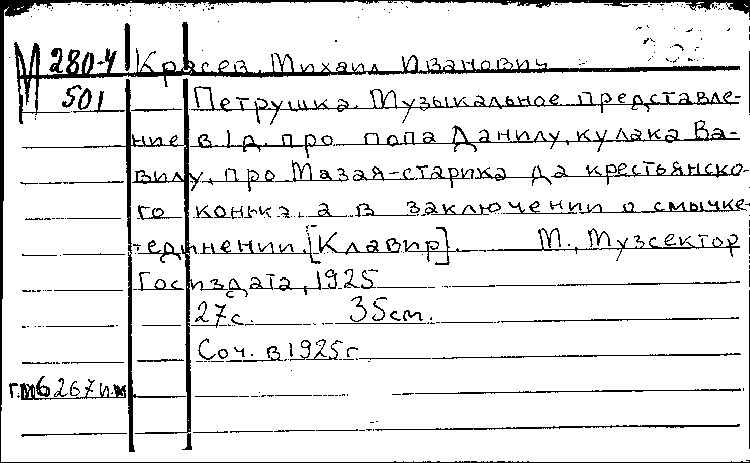 М 280-4 Красев, Михаил Иванович
501 Петрушка. Музыкальное представле-
ние в 1 д. про попа Данилу, кулака Ва-
вилу, про Мазая-старика да крестьянско-
го конька, а в заключении о смычке-
единении. [Клавир]. М., Музсектор
Госиздата, 1925
27с. 35см.
Соч. в 1925 г
267